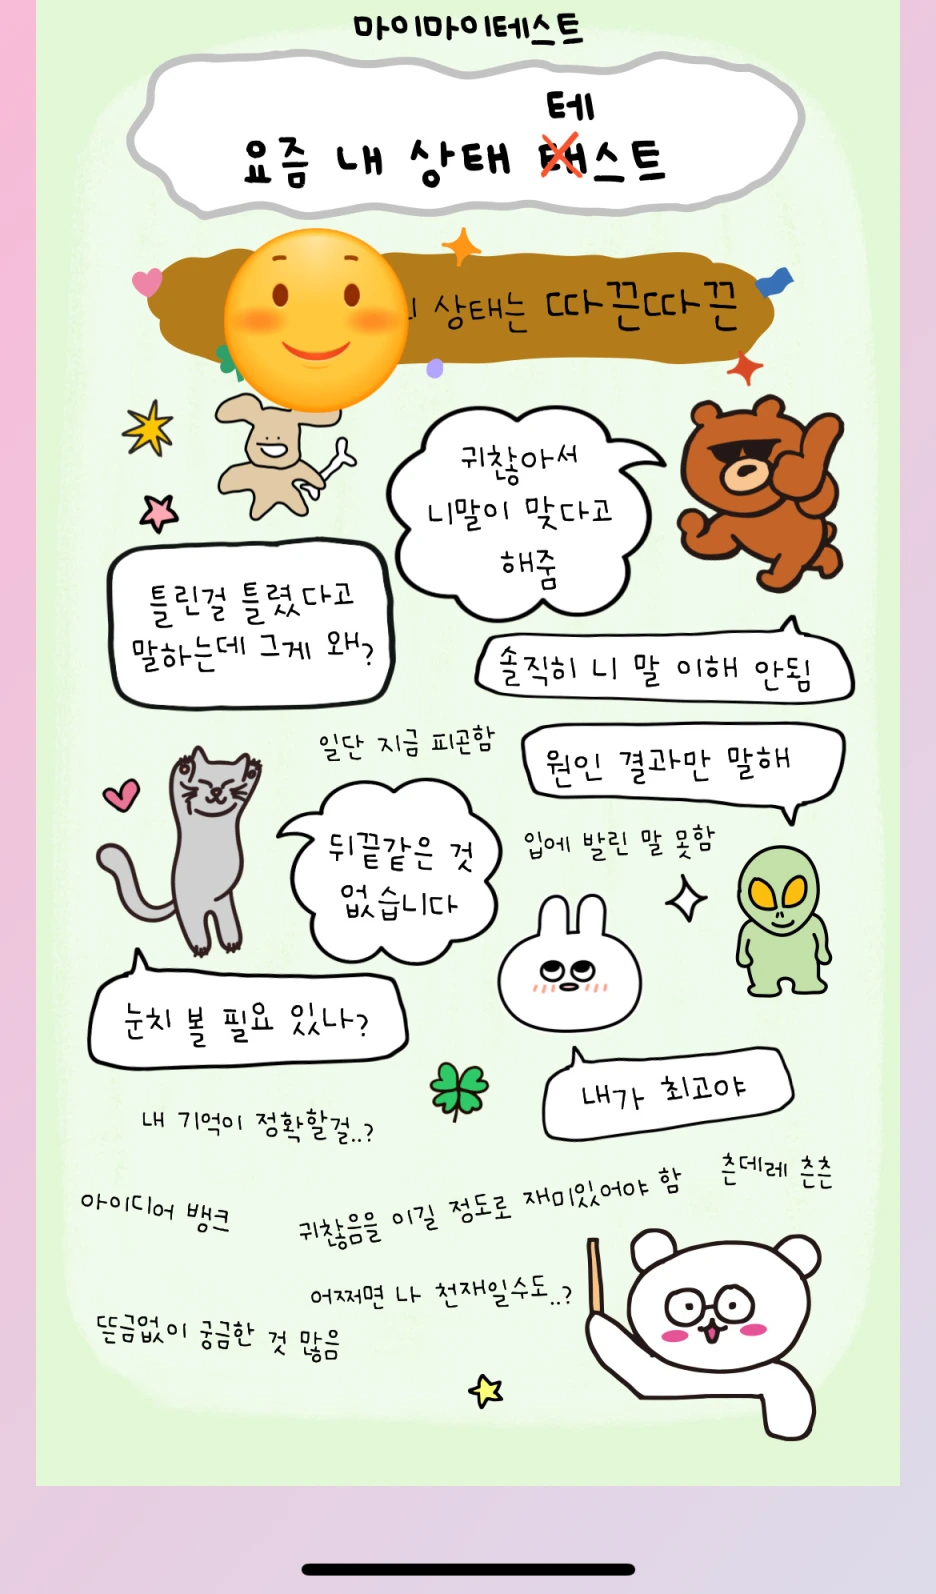 마이마이테스트
테
요즘 내 상태 태스트
상태는 따끈따끈
귀찮아서
니말이 맞다고
해줌
틀린걸 틀렸다고
말하는데 그게 왜?
솔직히 니 말 이해 안됨
일단 지금 피곤함
원인 결과만 말해
뒤끝같은 것
없습니다
입에 발린 말 못함
눈치 볼 필요 있나?
내가 최고야
내 기억이 정확할걸..?
츤데레 츤츤
아이디어 뱅크
귀찮음을 이길 정도로 재미있어야 함
어쩌면 나 천재일수도..?
뜬금없이 궁금한 것 많음